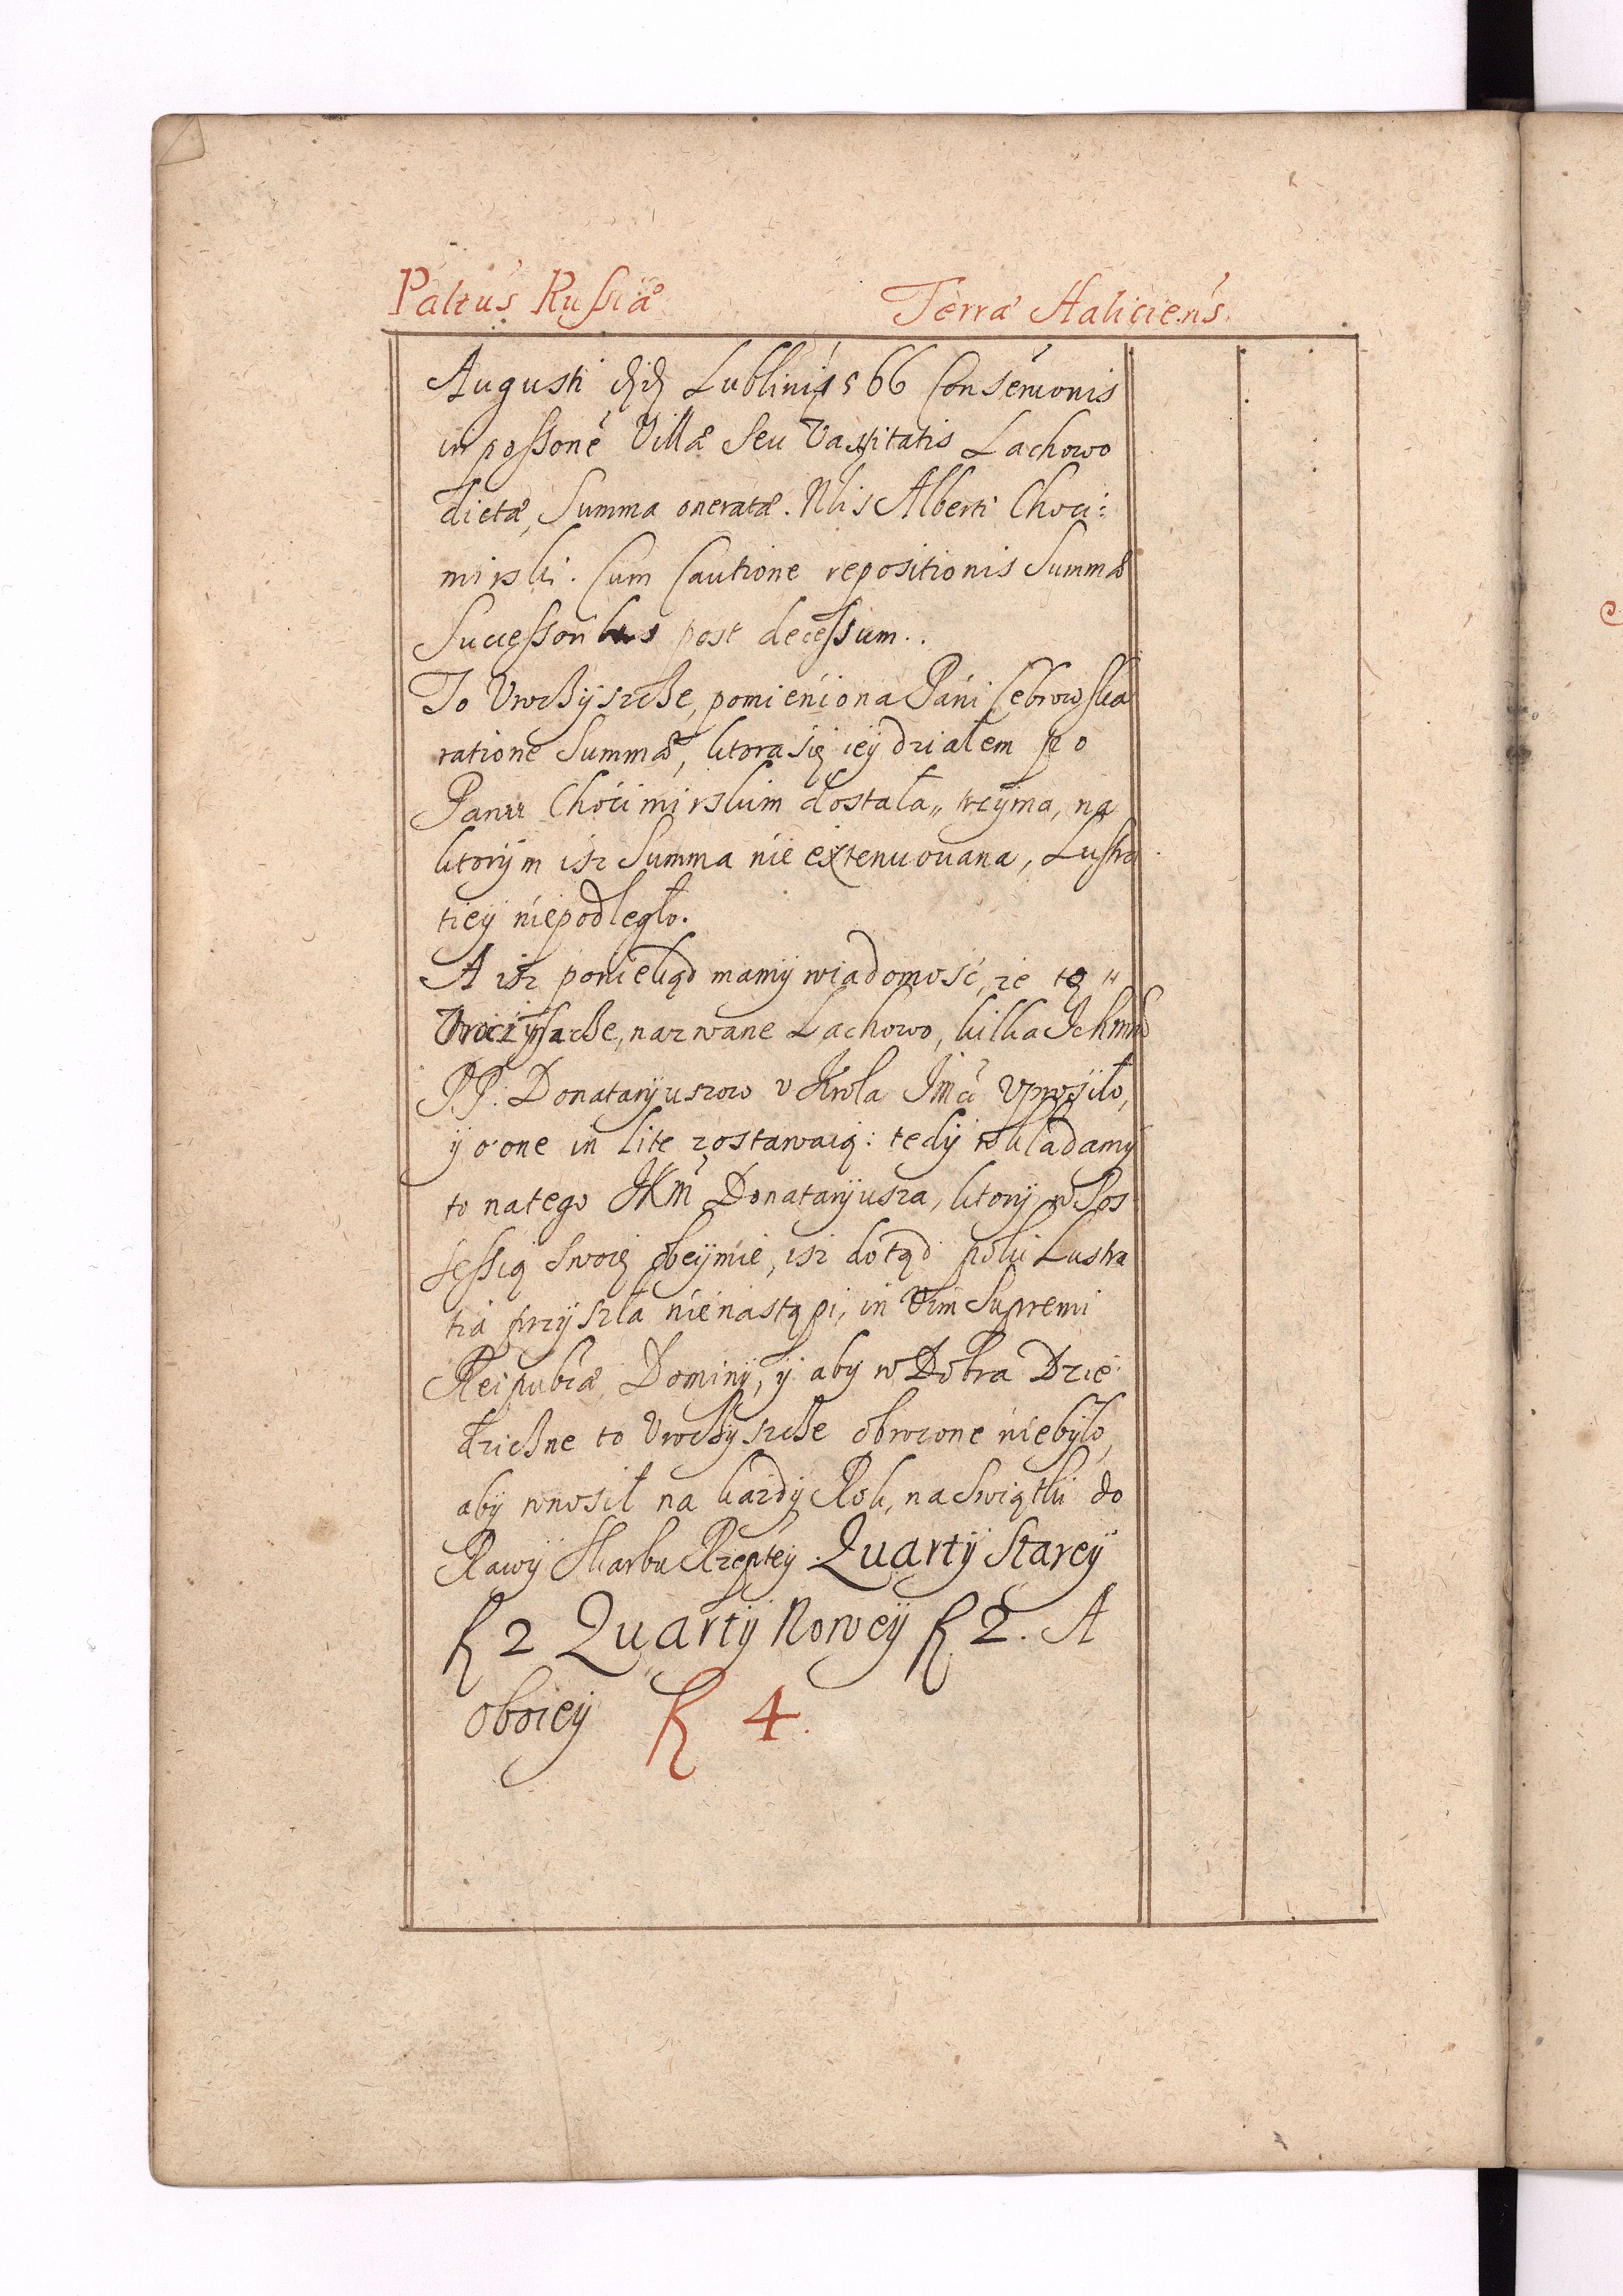 Paltus Russiæ Terræ Haliciens.
Augusti Lublini 1566 Conseruonis
in possone Villæ Seu Vastitatis Lachowo
dictæ, Summa oneratæ. Nlis Alberti Choci:
mirski. Cum Cautione repositionis Summæ
Successoribus post decessum.
To Vroczyszcze, pomieniona Páni Cebrowska
ratione Summæ, ktora się ieÿ działem po
Panu Chocimirskim dostała„ trzÿma, na
ktorÿm isz Summa nie extenuowana, Lustra
tieÿ niepodległo.
A isz poniekąd mamÿ wiadomosć, ze to „
Vroczÿszcze, nazwane Lachowo, kilka Ichmć
PP: Donatarÿuszow v Krola Jmći Vprosiło,
ÿ o one in Lite zostawaią: tedÿ wkładamÿ
to na tego JKM Donatarÿusza, ktorÿ w Pos
sessią Swoię obeÿmie, isz dotąd poki Lustra
tia przÿszła nienastąpi, in Vim Supremi
Reipubcæ Dominÿ, ÿ aby w Dobra Dzie
dziczne to Vroczÿszcze obrocone niebÿło,
abÿ wnosił na każdÿ Rok, na Swiątki do
Rawÿ Skarbu Rzeptéÿ Quartÿ Starey
f 2 Quartÿ Noweÿ f 2. A
oboieÿ f 4.